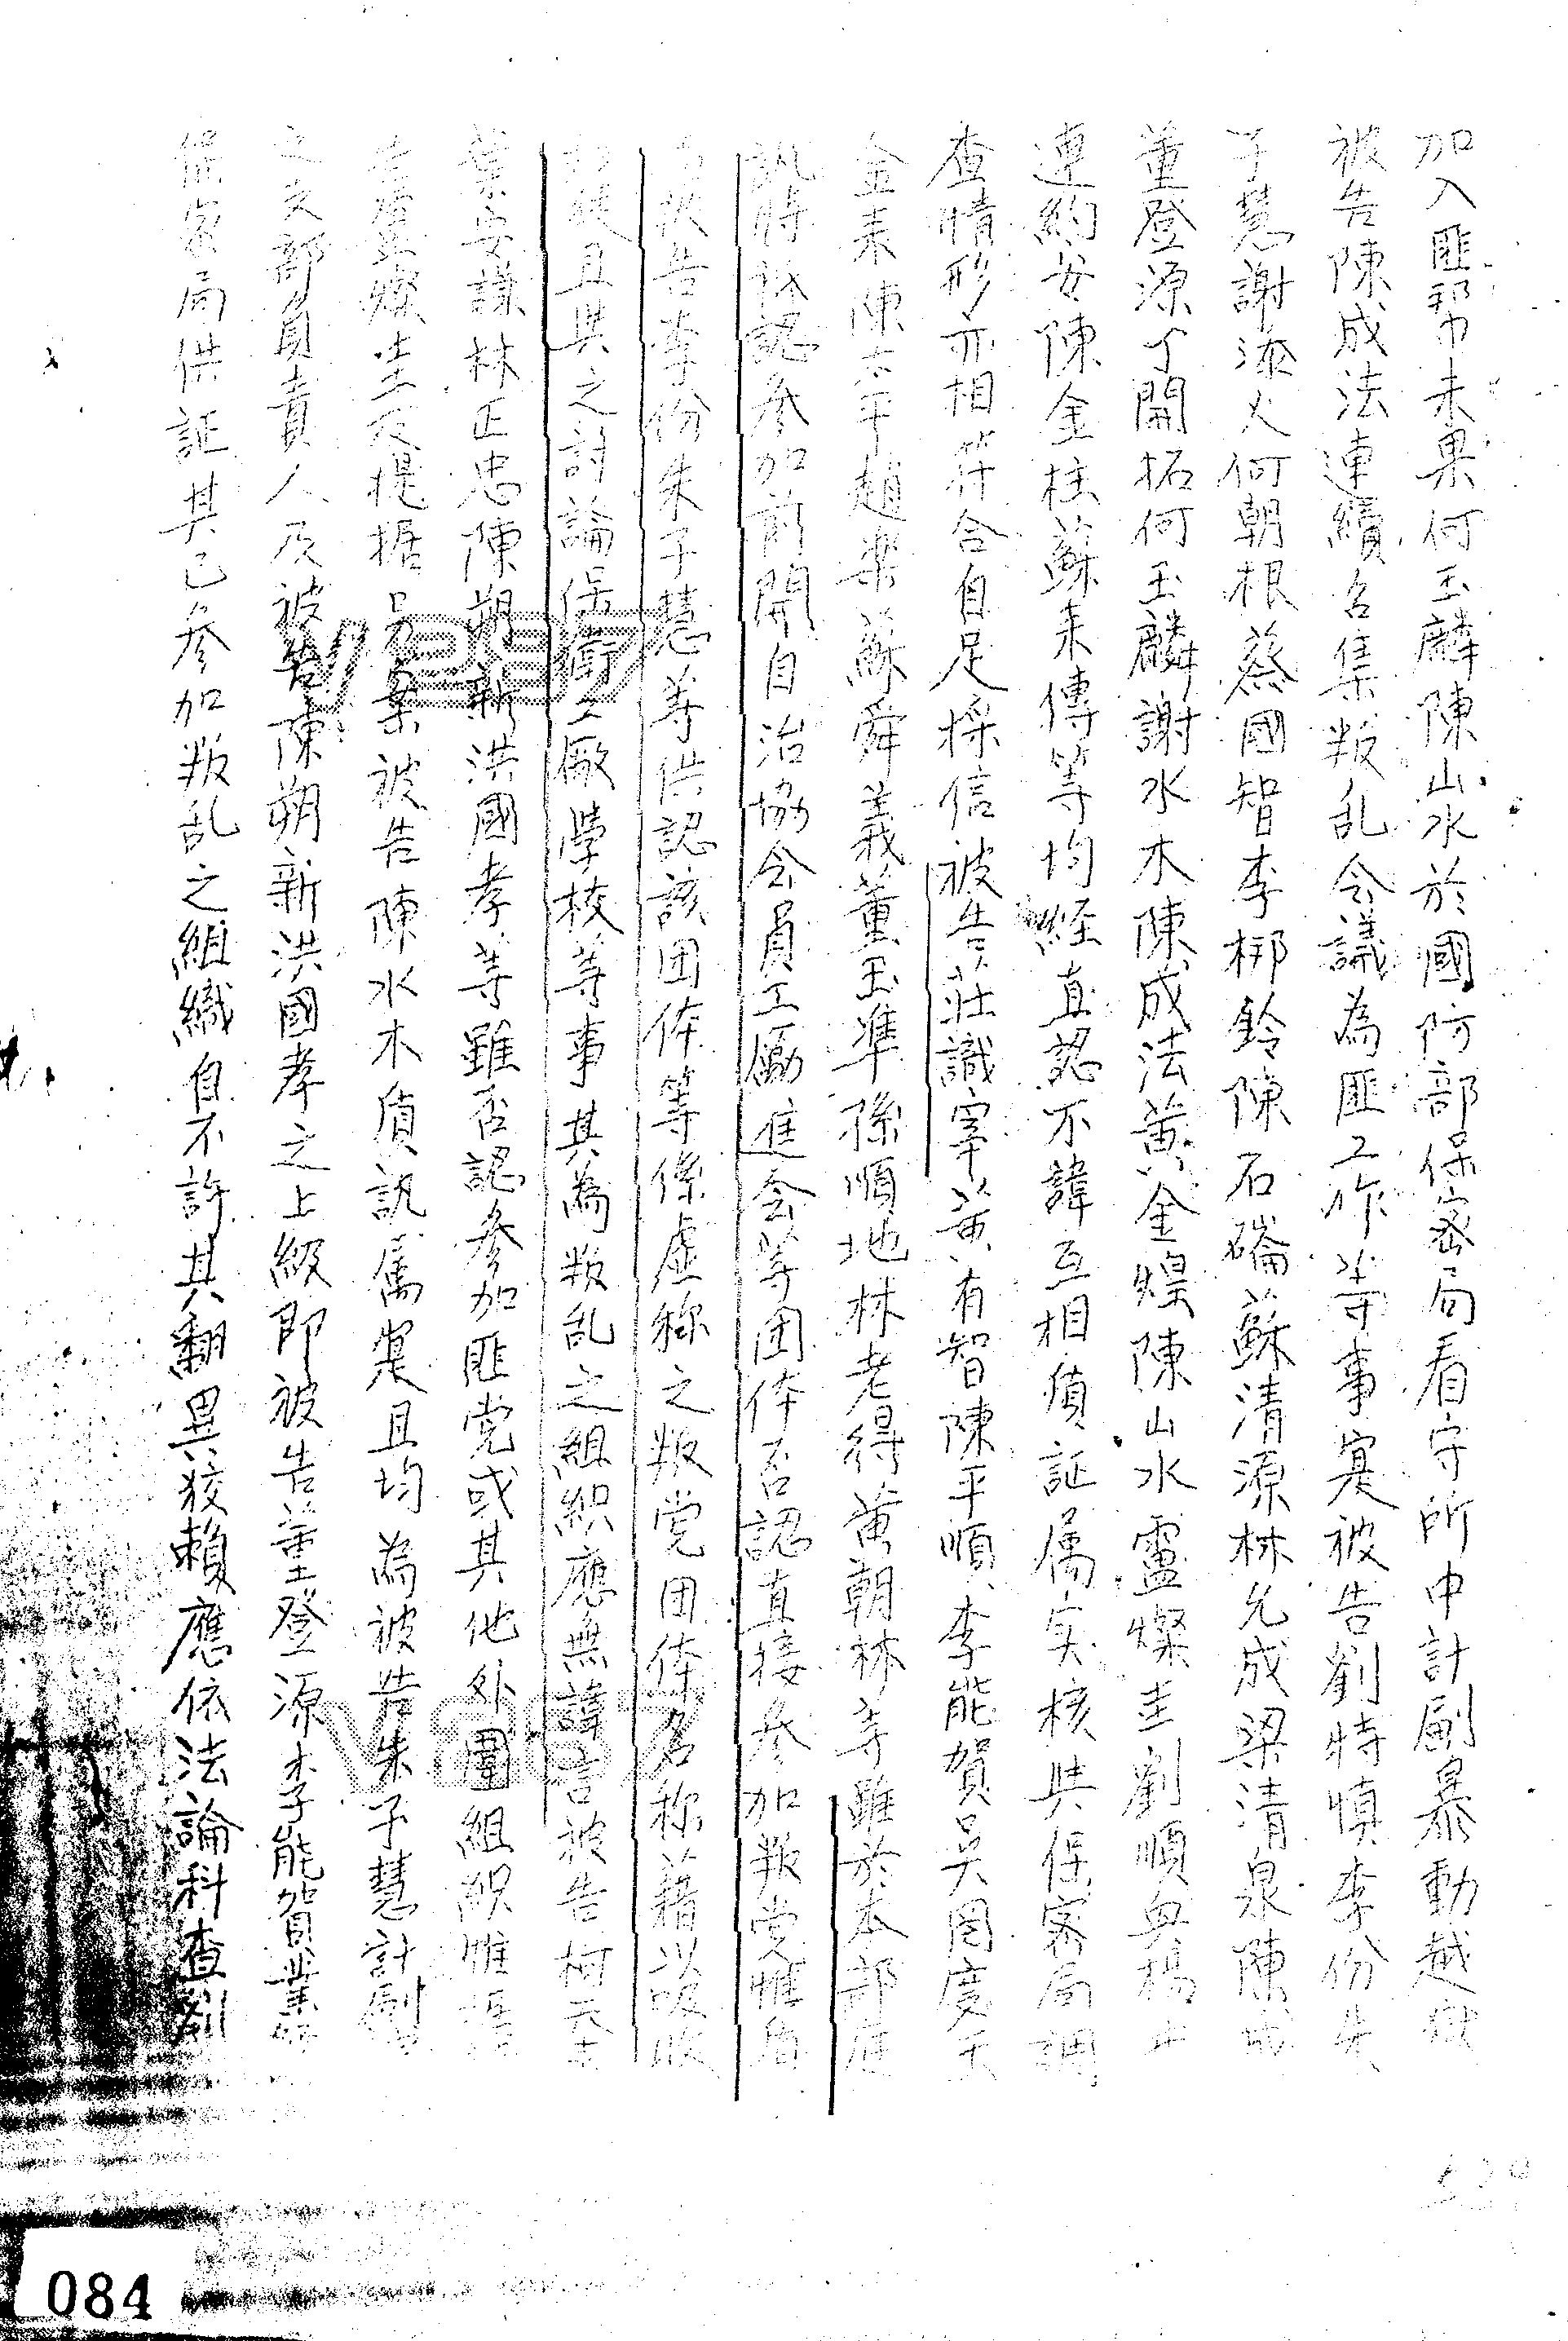 加入匪幫未果何玉麟陳山水於國防部保密局看守所中計劃暴動越獄
被告陳成法連續召集叛乱会議為匪工作等事寔被告劉特慎李份朱
子慧謝添火何朝根蔡國智李梆鈴陳石碖蘇清源林允成梁清泉陳
董登源丁開拓何玉麟謝水木陳成法黄金煌陳山水盧燦圭劉順與楊
連約安陳金柱蘇耒傳等均経直認不諱互相質証属实核與保密局調
查情形亦相符合自足採信被告莊識宰黄有智陳平順李能賀吳囤度
金耒陳太平趙樂蘇舜義董玉準孫順地林老得黄朝林等雖於本部庭
訊時祇認参加前開自治協会員工励進会等团体否認直接参加叛党惟
被告李份朱子慧等供認該团体等係虚称之叛党团体名称藉以吸收
且與之討論保衛工廠學校等事其為叛乱之組織應無諱言被告柯
葉安謙林正忠陳朔新洪國孝等雖否認参加匪党或其他外圍組織惟
燦圭及提据另案被告陳水木質訊属寔且均為被告朱子慧計劃
之支部負責人及被告陳朔新洪國孝之上級即被告董登源李能賀業
保密局供証其已参加叛乱之組織自不許其翻異狡賴應依法論科查劉
084